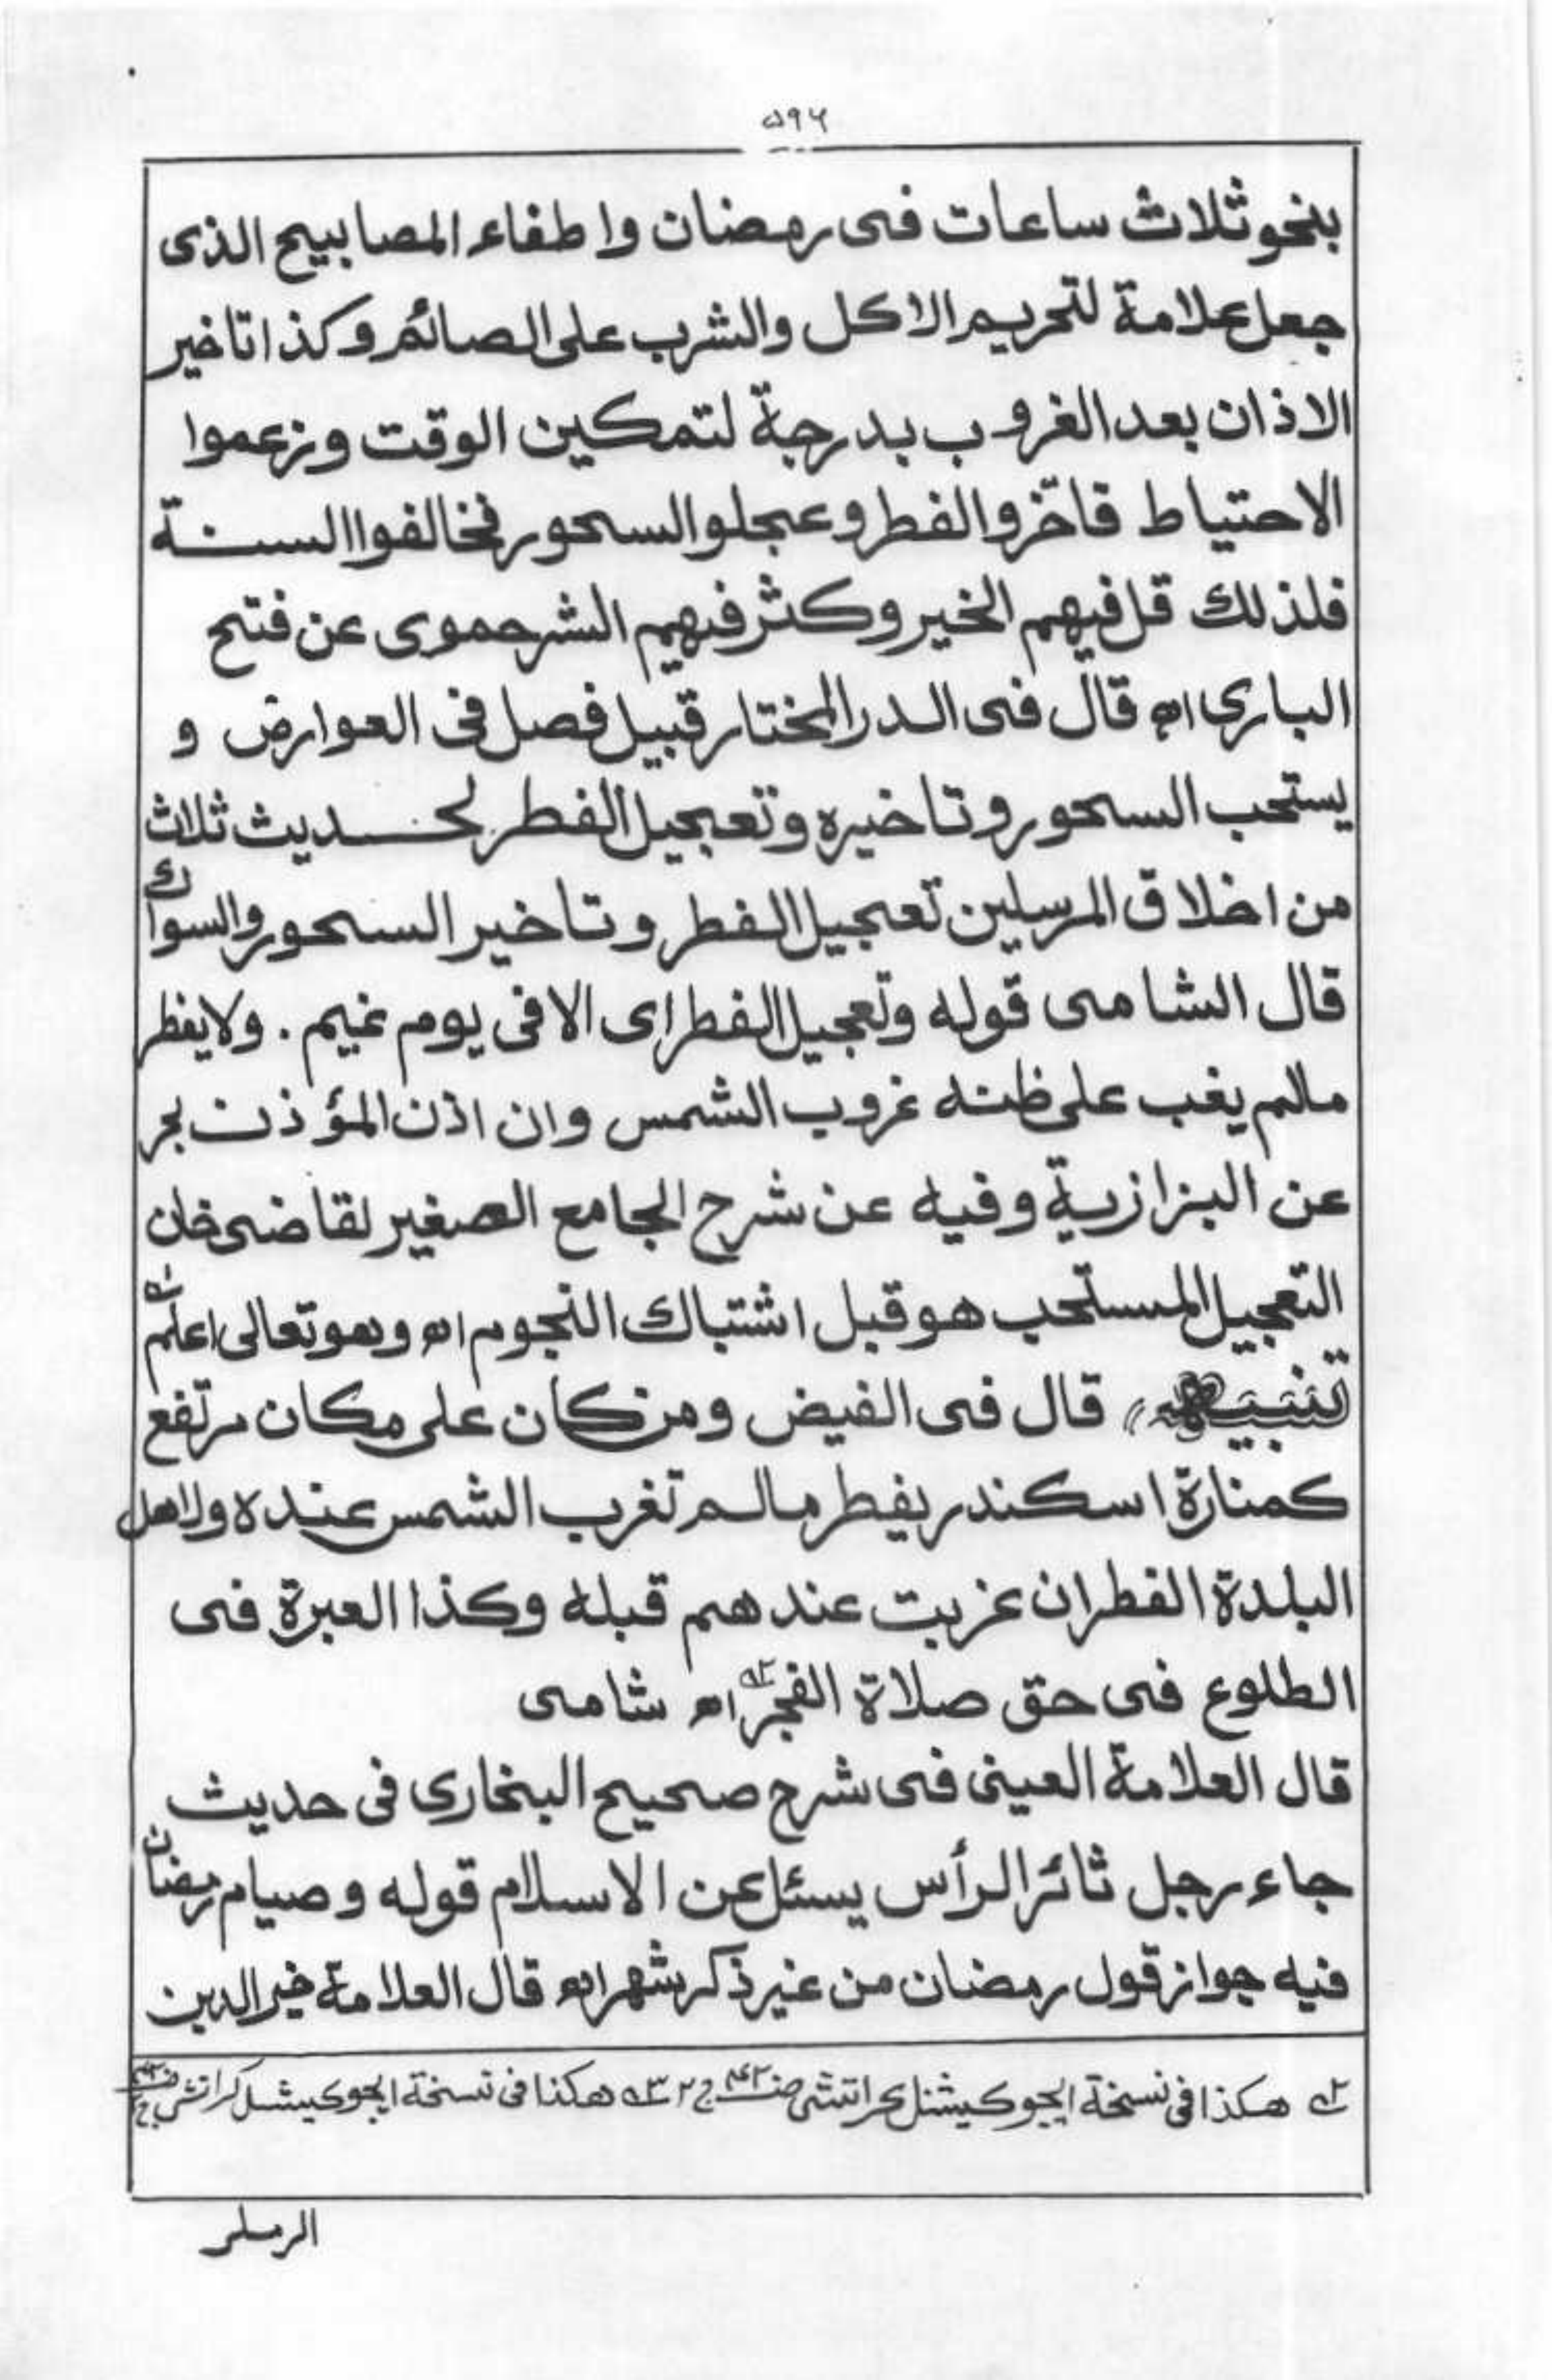 ۵۹۶
بنحو ثلاث ساعات فى رمضان واطفاء المصابيح الذى
جعل علامة لتحريم الاكل والشرب على الصائم وكذا تاخير
الاذان بعد الغروب بدرجة لتمكين الوقت وزعموا
الاحتياط فاخّروا الفطر وعجلوا السحور فخالفوا السنة
فلذلك قل فيهم الخير وكثر فيهم الشر حموى عن فتح
البارى اھ قال فى الدر المختار قبيل فصل فى العوارض و
يستحب السحور وتاخيره وتعجيل الفطر لحديث ثلاث
من اخلاق المرسلين تعجيل الفطر وتاخير السحور والسواك
قال الشامى قوله وتعجيل الفطر اى الا فى يوم غيم . ولا يفطر
مالم يغب على ظنه غروب الشمس وان اذن المؤذن بحر
عن البزازية وفيه عن شرح الجامع الصغير لقاضى خان
التعجيل المستحب هو قبل اشتباك النجوم اھ وهو تعالى اعلم
تنبيه قال فى الفيض ومن كان على مكان مرتفع
كمنارة اسكندر يفطر مالم تغرب الشمس عنده ولاهل
البلدة الفطر ان غربت عندهم قبله وكذا العبرة فى
الطلوع فى حق صلاة الفجر اھ شامى
قال العلامة العينى فى شرح صحيح البخارى فى حديث
جاء رجل ثائر الرأس يسئل عن الاسلام قوله وصيام رمضان
فيه جواز قول رمضان من غير ذكر شهر اھ قال العلامة خير الدين
هكذا فى نسخة ايجوكيشنل كراتشى ج ۲ هكذا فى نسخة ايجوكيشنل كراتشى
الرملى